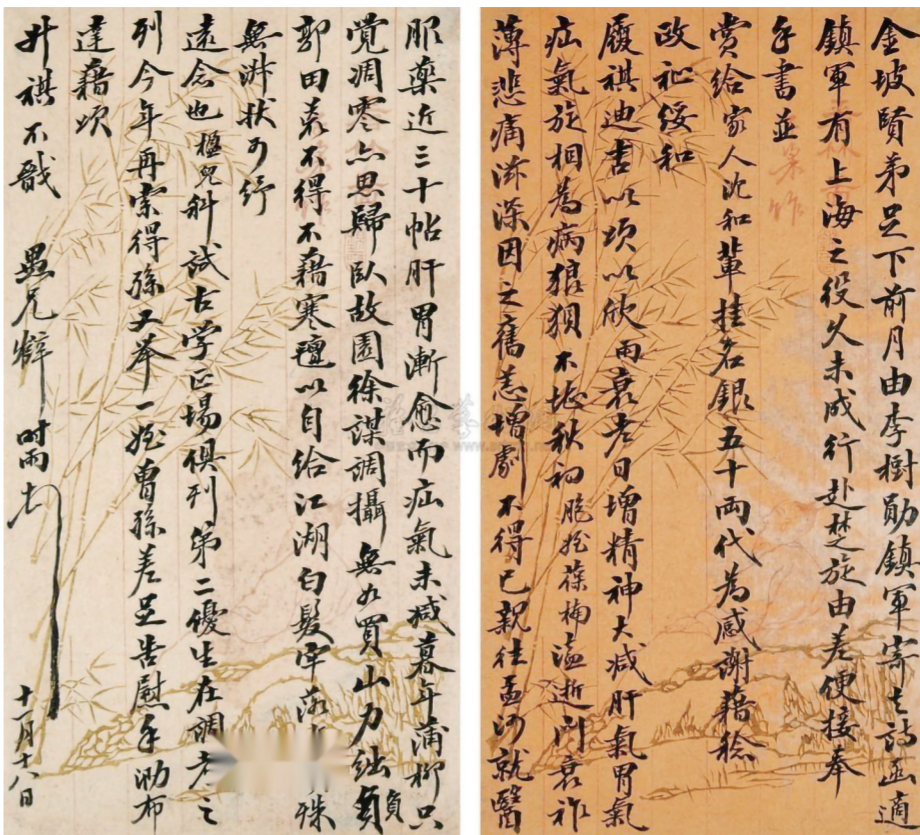 金坡賢弟足下前月由李樹勛鎮軍寄書誨函適
鎮軍有上海之役久未成行赴楚旋由差便接奉
手書並
賞給家人沈和輩掛名銀五十両代為感謝藉稔
政祉綏和
履祺迪吉以頌以欣雨衰老日增精神大減肝氣胃氣
疝氣旋相為病狼狽不堪秋初胞姪葆楠溘逝門衰祚
薄悲痛滋深因之舊恙增劇不得已親往孟河就醫
服藥近三十帖肝胃漸愈而疝氣未減暮年蒲柳只
覺凋零亟思歸臥故園徐謀調攝無如買山力絀負
郭田袁不得不藉寒氊以自給江湖白髮牢落 殊
無淋狀可紓
遠念也極兒科試古学正場俱列第二優生在調考之
列今年再索得孫又舉一姪曾孫差足告慰手泐布
達藉頌
升祺不戩 愚兄 時雨頓
十一月十八日